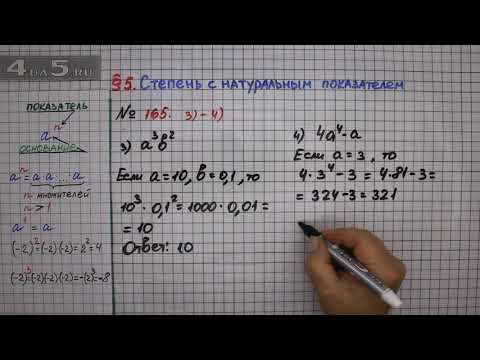 4на5.RU
§5. Степень с натуральным показателем
№ 165. 3) – 4)
показатель
aⁿ
основание
aⁿ = a·a·...·a
n множителей
n > 1
a¹ = a
(-2)² = (-2)·(-2) = 2² = 4
(-2)³ = (-2)(-2)(-2) = -(2)³ = -8
3) a³b²
Если a = 10, b = 0,1, то
10³ · 0,1² = 1000 · 0,01 =
= 10
Ответ: 10
4) 4a⁴ - a
Если a = 3, то
4 · 3⁴ - 3 = 4 · 81 - 3 =
= 324 - 3 = 321